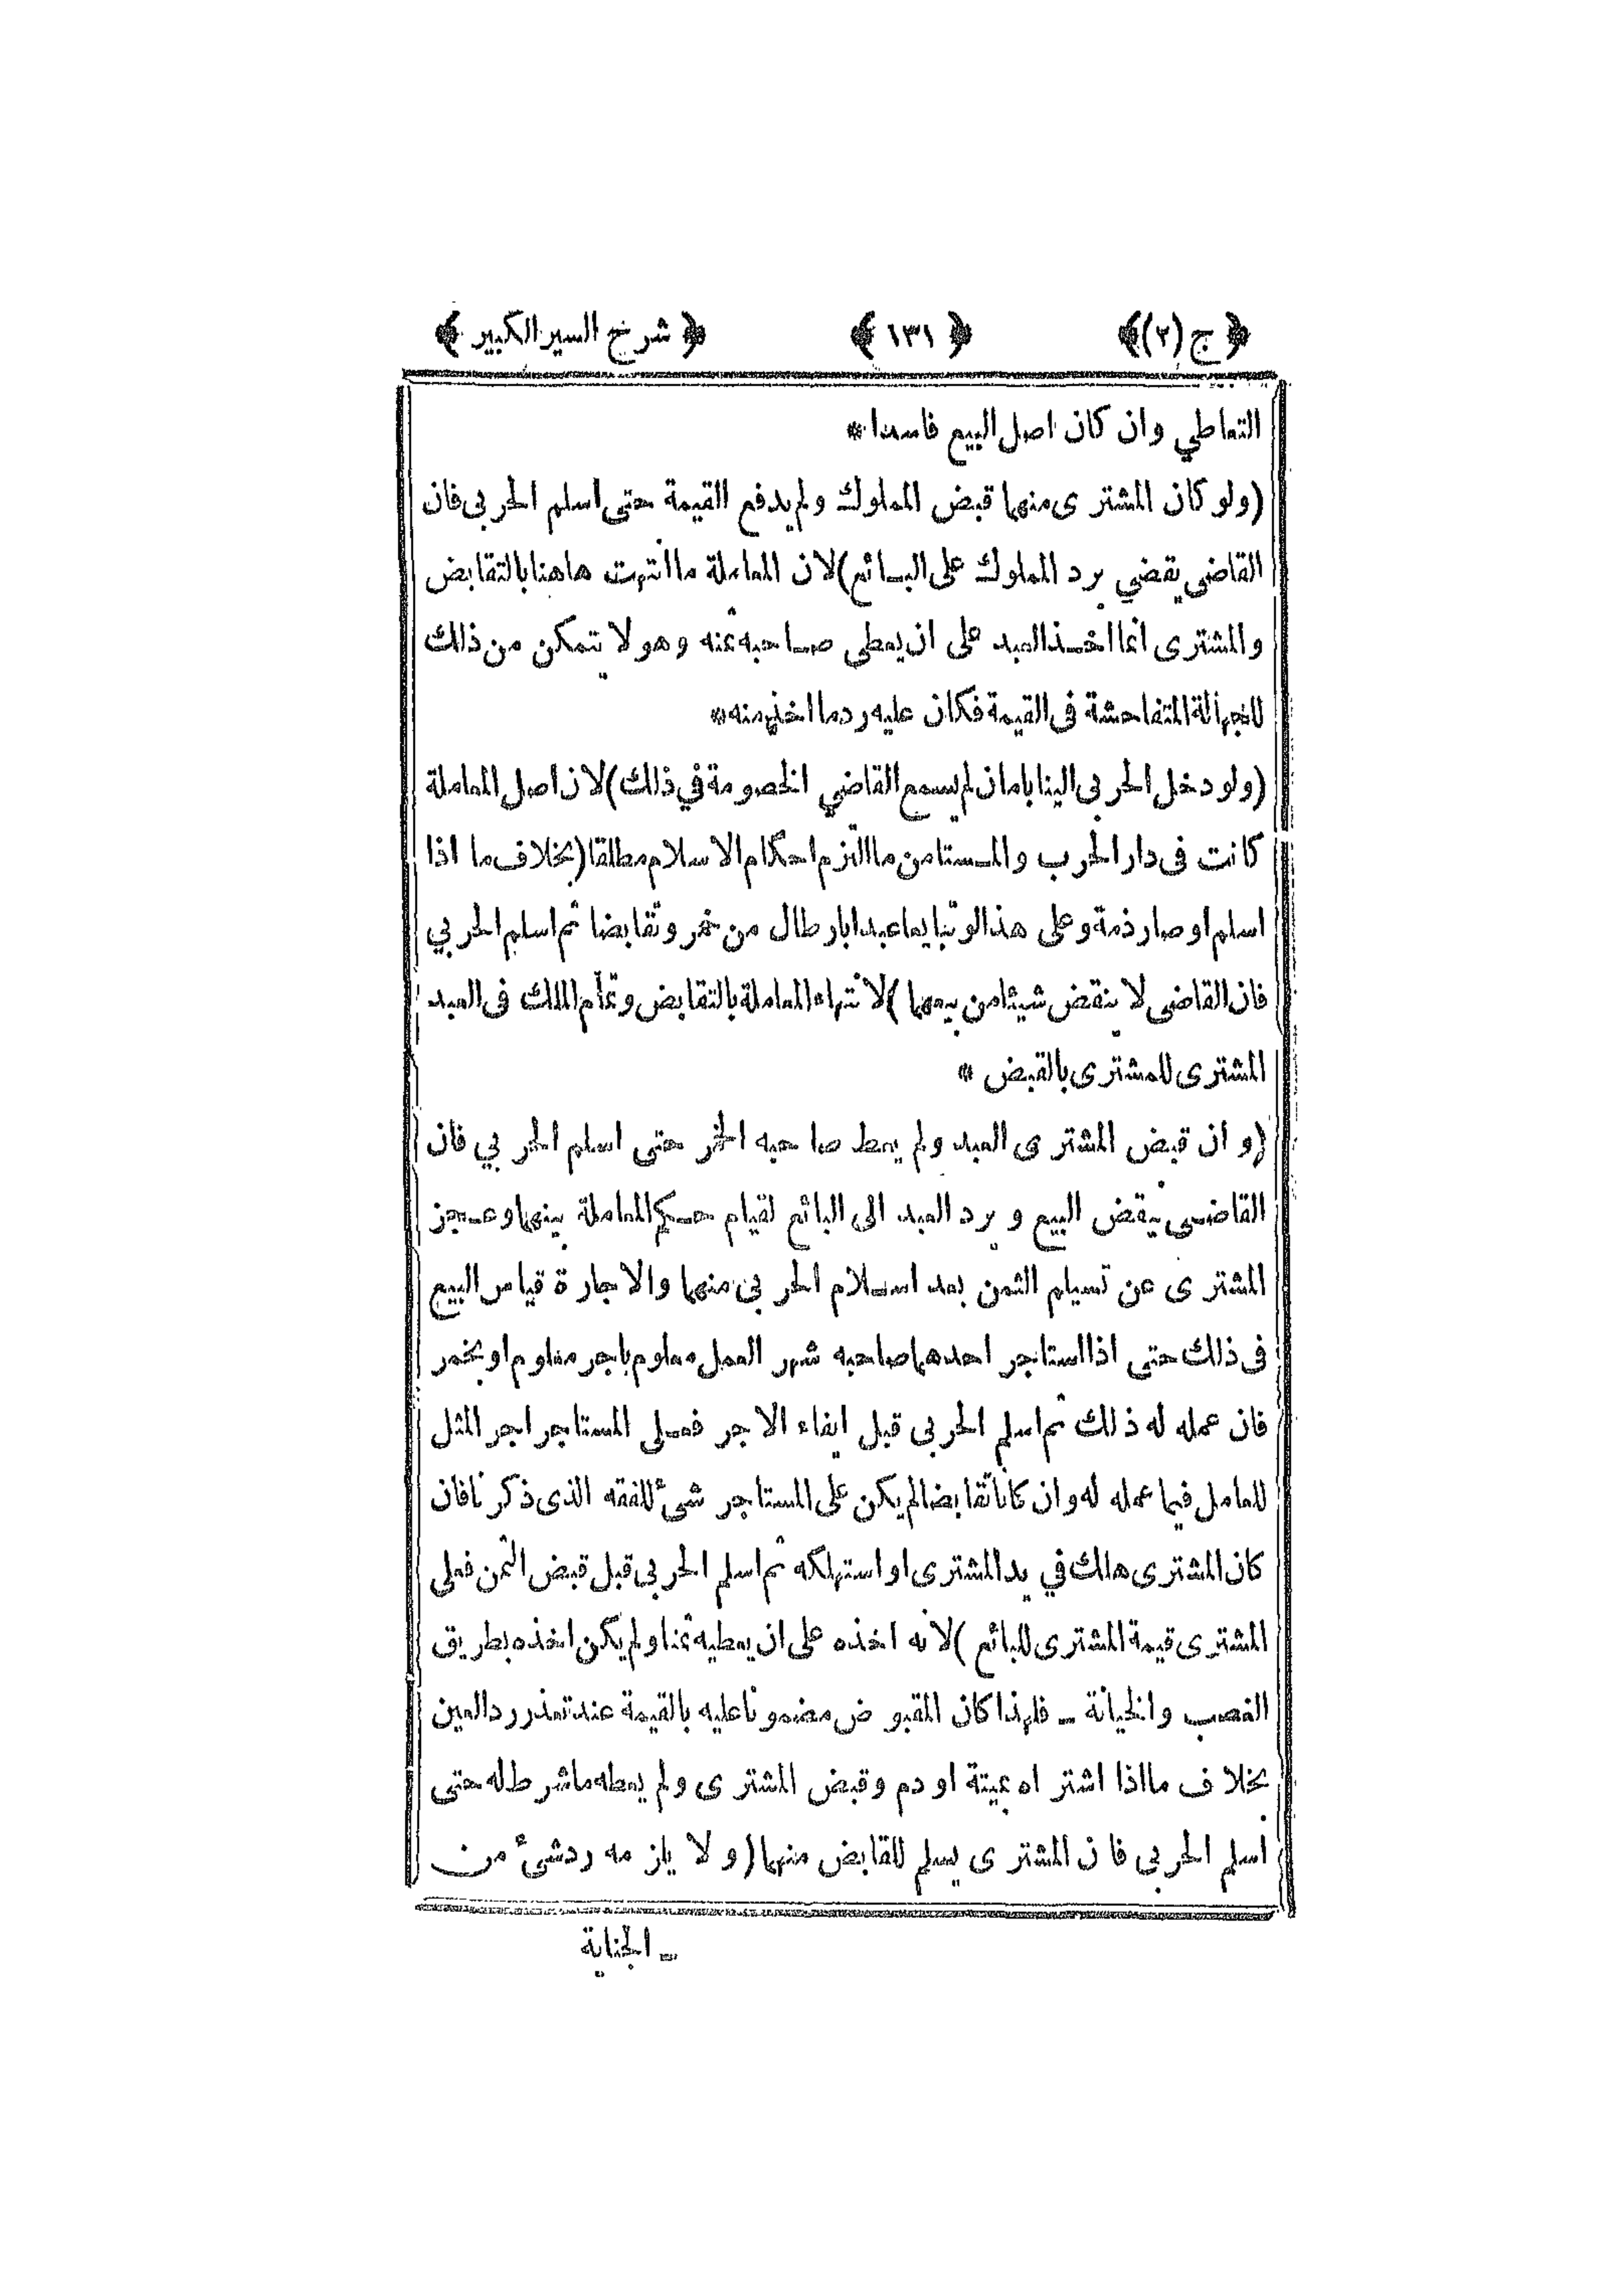 ﴿ ج (٢) ﴾ ﴿ ١٣١ ﴾ ﴿ شرح السير الكبير ﴾
التعاطي وان كان اصل البيع فاسدا *
(ولو كان المشترى منهما قبض المملوك ولم يدفع القيمة حتى اسلم الحربى فان
القاضى يقضي برد المملوك على البائع) لان المعاملة ما انتهت هاهنا بالتقابض
والمشترى انما اخذ العبد على ان يعطى صاحبه ثمنه وهو لا يتمكن من ذلك
للجهالة المتفاحشة فى القيمة فكان عليه رد ما اخذ منه *
(ولو دخل الحربى الينا بامان لم يسمع القاضي الخصومة في ذلك) لان اصل المعاملة
كانت فى دار الحرب والمستامن ما التزم احكام الاسلام مطلقا (بخلاف ما اذا
اسلم او صار ذمة وعلى هذا لو تبايعا عبدا بارطال من خمر وتقابضا ثم اسلم الحربي
فان القاضى لا ينقض شيئا من بيعهما) لانتهاء المعاملة بالتقابض وتمام الملك فى العبد
المشترى للمشترى بالقبض *
(و ان قبض المشترى العبد ولم يعط صاحبه الخمر حتى اسلم الحربي فان
القاضى ينقض البيع و يرد العبد الى البائع لقيام حكم المعاملة بينهما وعجز
المشترى عن تسليم الثمن بعد اسلام الحربى منهما والاجارة قياس البيع
فى ذلك حتى اذا استاجر احدهما صاحبه شهر العمل معلوم باجر معلوم او بخمر
فان عمله له ذلك ثم اسلم الحربى قبل ايفاء الاجر فعلى المستاجر اجر المثل
للعامل فيما عمله له وان كانا تقابضا لم يكن على المستاجر شئ للفقه الذى ذكرنا فان
كان المشترى هلك في يد المشترى او استهلكه ثم اسلم الحربى قبل قبض الثمن فعلى
المشترى قيمة المشترى للبائع) لانه اخذه على ان يعطيه ثمنا ولم يكن اخذه بطريق
الغصب والخيانة ـ فلهذا كان المقبوض مضمونا عليه بالقيمة عند تعذر رد العين
بخلاف ما اذا اشتراه بميتة او دم وقبض المشترى ولم يعطه ما شرط له حتى
اسلم الحربى فان المشترى يسلم للقابض منهما (و لا يلزمه رد شئ من
ـ الجناية